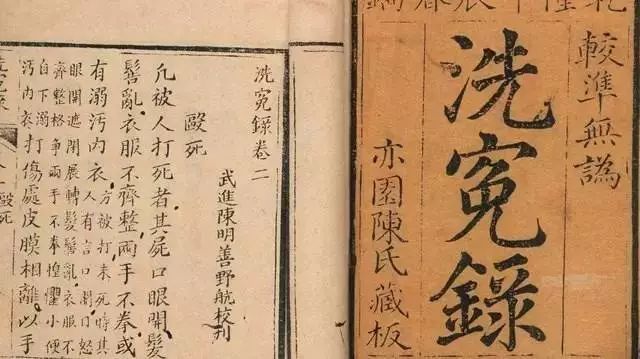 較準無譌
洗冤錄
亦園陳氏藏板
洗冤錄卷二
武進陳明善野航校刊
毆死
凡被人打死者其屍口眼開髮
髻亂衣服不齊整兩手不拳或
有溺汚内衣
方被打未死時其
人有言口開目怒
眼開遮閉展轉髮髻亂衣服不
齊整格爭兩手不拳惶懼小便
自下溺
汚内衣
打傷處皮膜相離以手
毆死